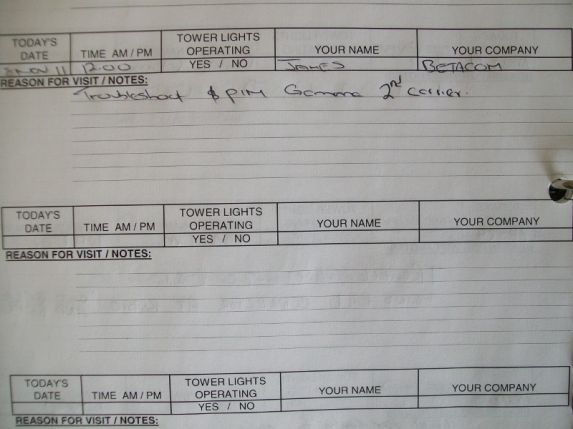 TODAY'S DATE TIME AM / PM TOWER LIGHTS OPERATING YOUR NAME YOUR COMPANY
NOV 11 12:00 YES / NO JAMES BETACOM
REASON FOR VISIT / NOTES:
Troubleshoot & PIM Gamma 2nd carrier.
TODAY'S DATE TIME AM / PM TOWER LIGHTS OPERATING YOUR NAME YOUR COMPANY
YES / NO
REASON FOR VISIT / NOTES:
TODAY'S DATE TIME AM / PM TOWER LIGHTS OPERATING YOUR NAME YOUR COMPANY
YES / NO
REASON FOR VISIT / NOTES: